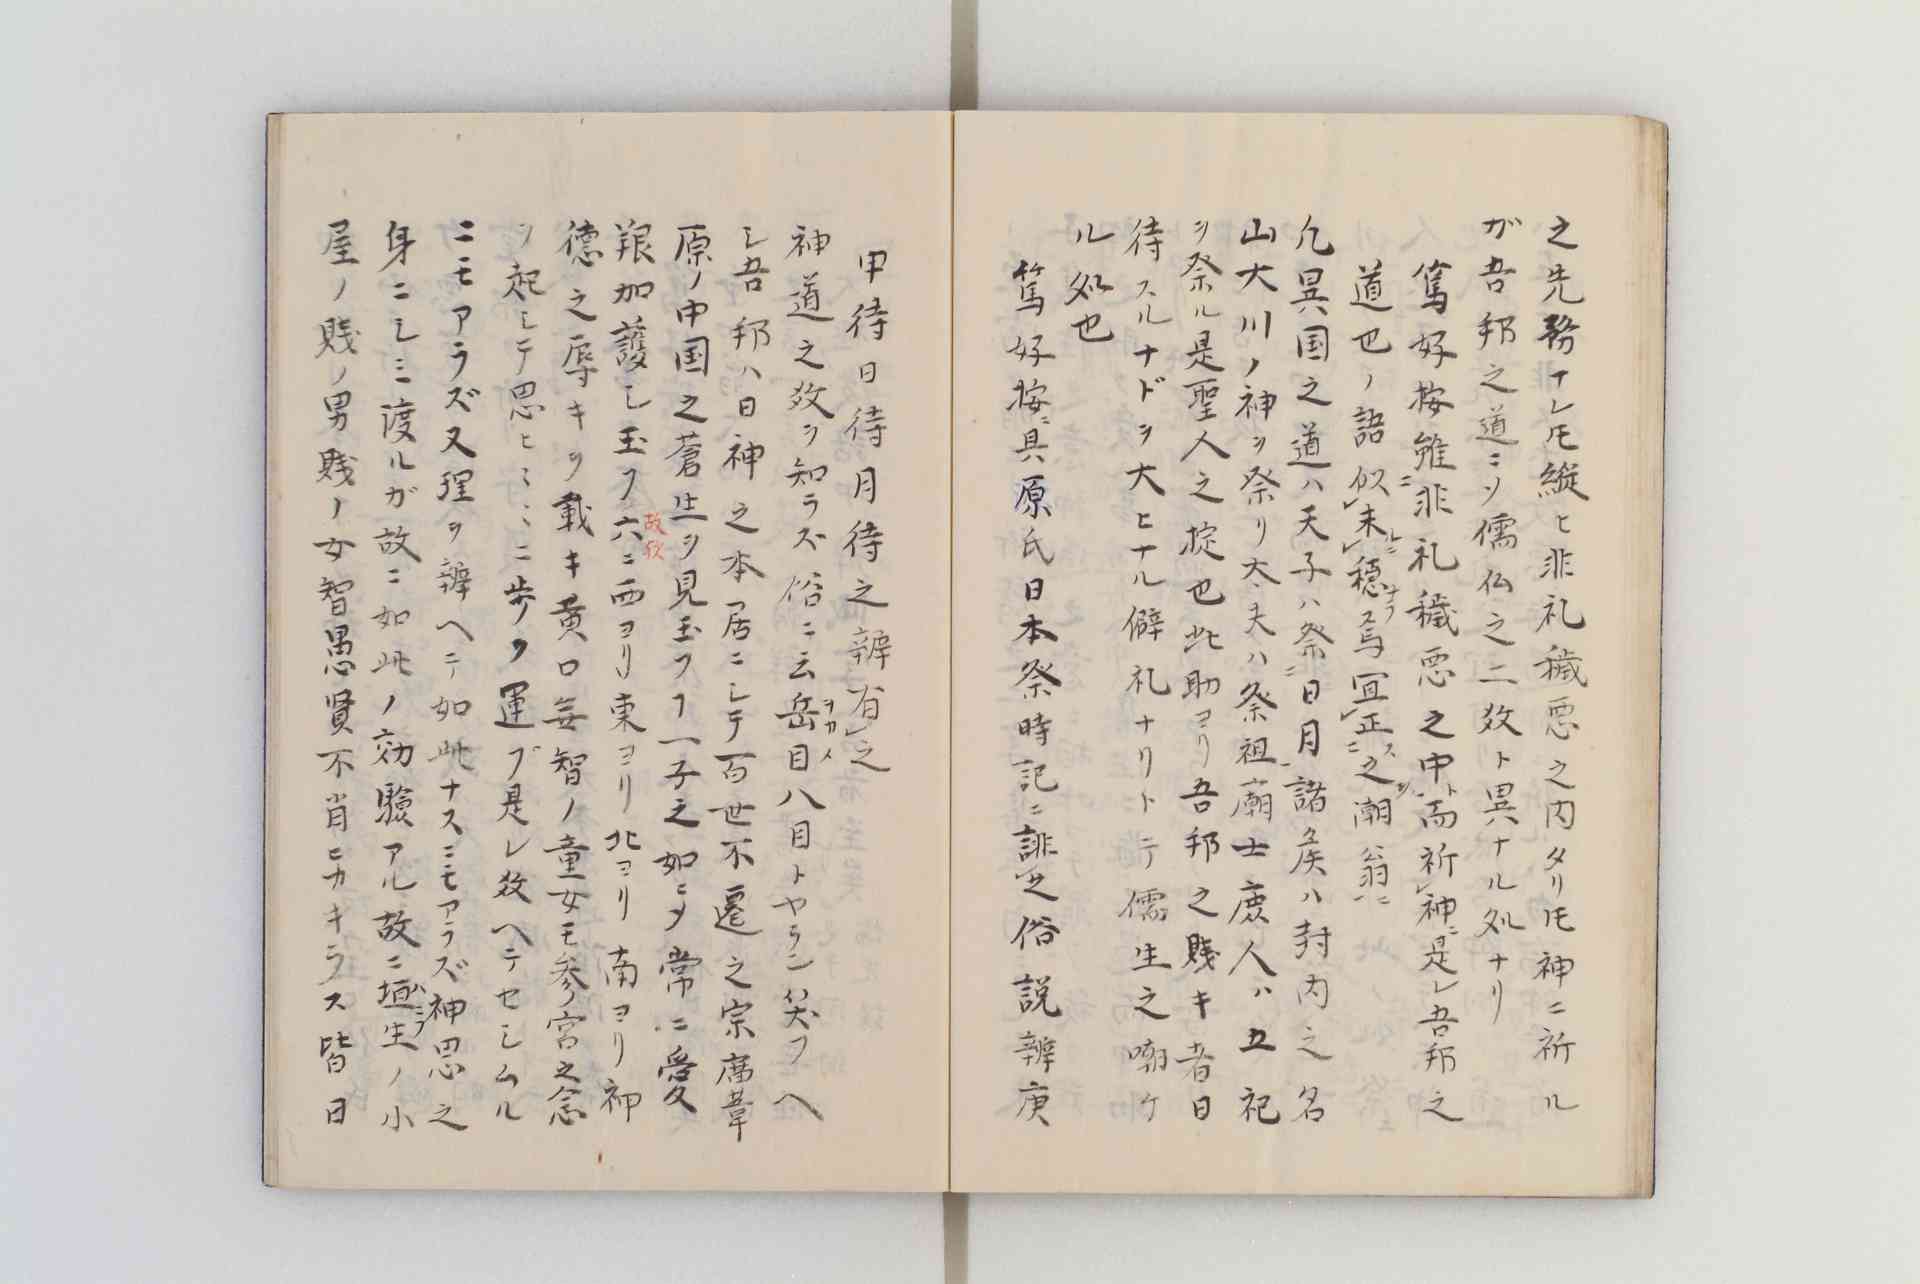 之先務ナレ𪜈縦ヒ非礼穢悪之内タリ𪜈神ニ祈ル
ガ吾邦之道ニソ儒仏之二教ト異ナル処ナリ
篤好按雖ニ非礼穢悪之中ト而祈レ神ニ是レ吾邦之
道也ノ語似レ未ルニレ穏ナラ焉冝レ正ス之ヲ潮翁ニ
凡異国之道ハ天子ハ祭ニ日月ヲ諸矦ハ封内之名
山大川ノ神ヲ祭リ大夫ハ祭祖廟士庶人ハ五祀
ヲ祭ル是聖人之掟也此助ヨリ吾邦之賎キ者日
待スルナドヲ大ヒナル僻礼ナリトテ儒生之嘲ケ
ル処也
篤好按ニ具原氏日本祭時記ニ誹之俗説辨庚
申待日待月待之辨省レ之
神道之教ヲ知ラズ俗ニ云岳目ヲカメ八目トヤラン笑フヘ
シ吾邦ハ日神之本居ニシテ百世不遷之宗廟葦
原ノ中国之蒼生ヲ見玉フコ一子之如ニメ常ニ愛
眼加護シ玉フ六ニ西ヨリ東ヨリ北ヨリ南ヨリ神
故欤
徳之辱キヲ載キ黄口無智ノ童女モ参宮之念
ヲ起シテ思ヒミヽニ歩ク運ブ是レ教ヘテセシムル
ニモアラズ又理ヲ辨ヘテ如此ナスニモアラズ神恩之
身ニシミ渡ルガ故ニ如此ノ効驗アル故ニ埴生ハニフノ小
屋ノ賎ノ男賎ノ女智愚賢不肖ニカキラス皆日